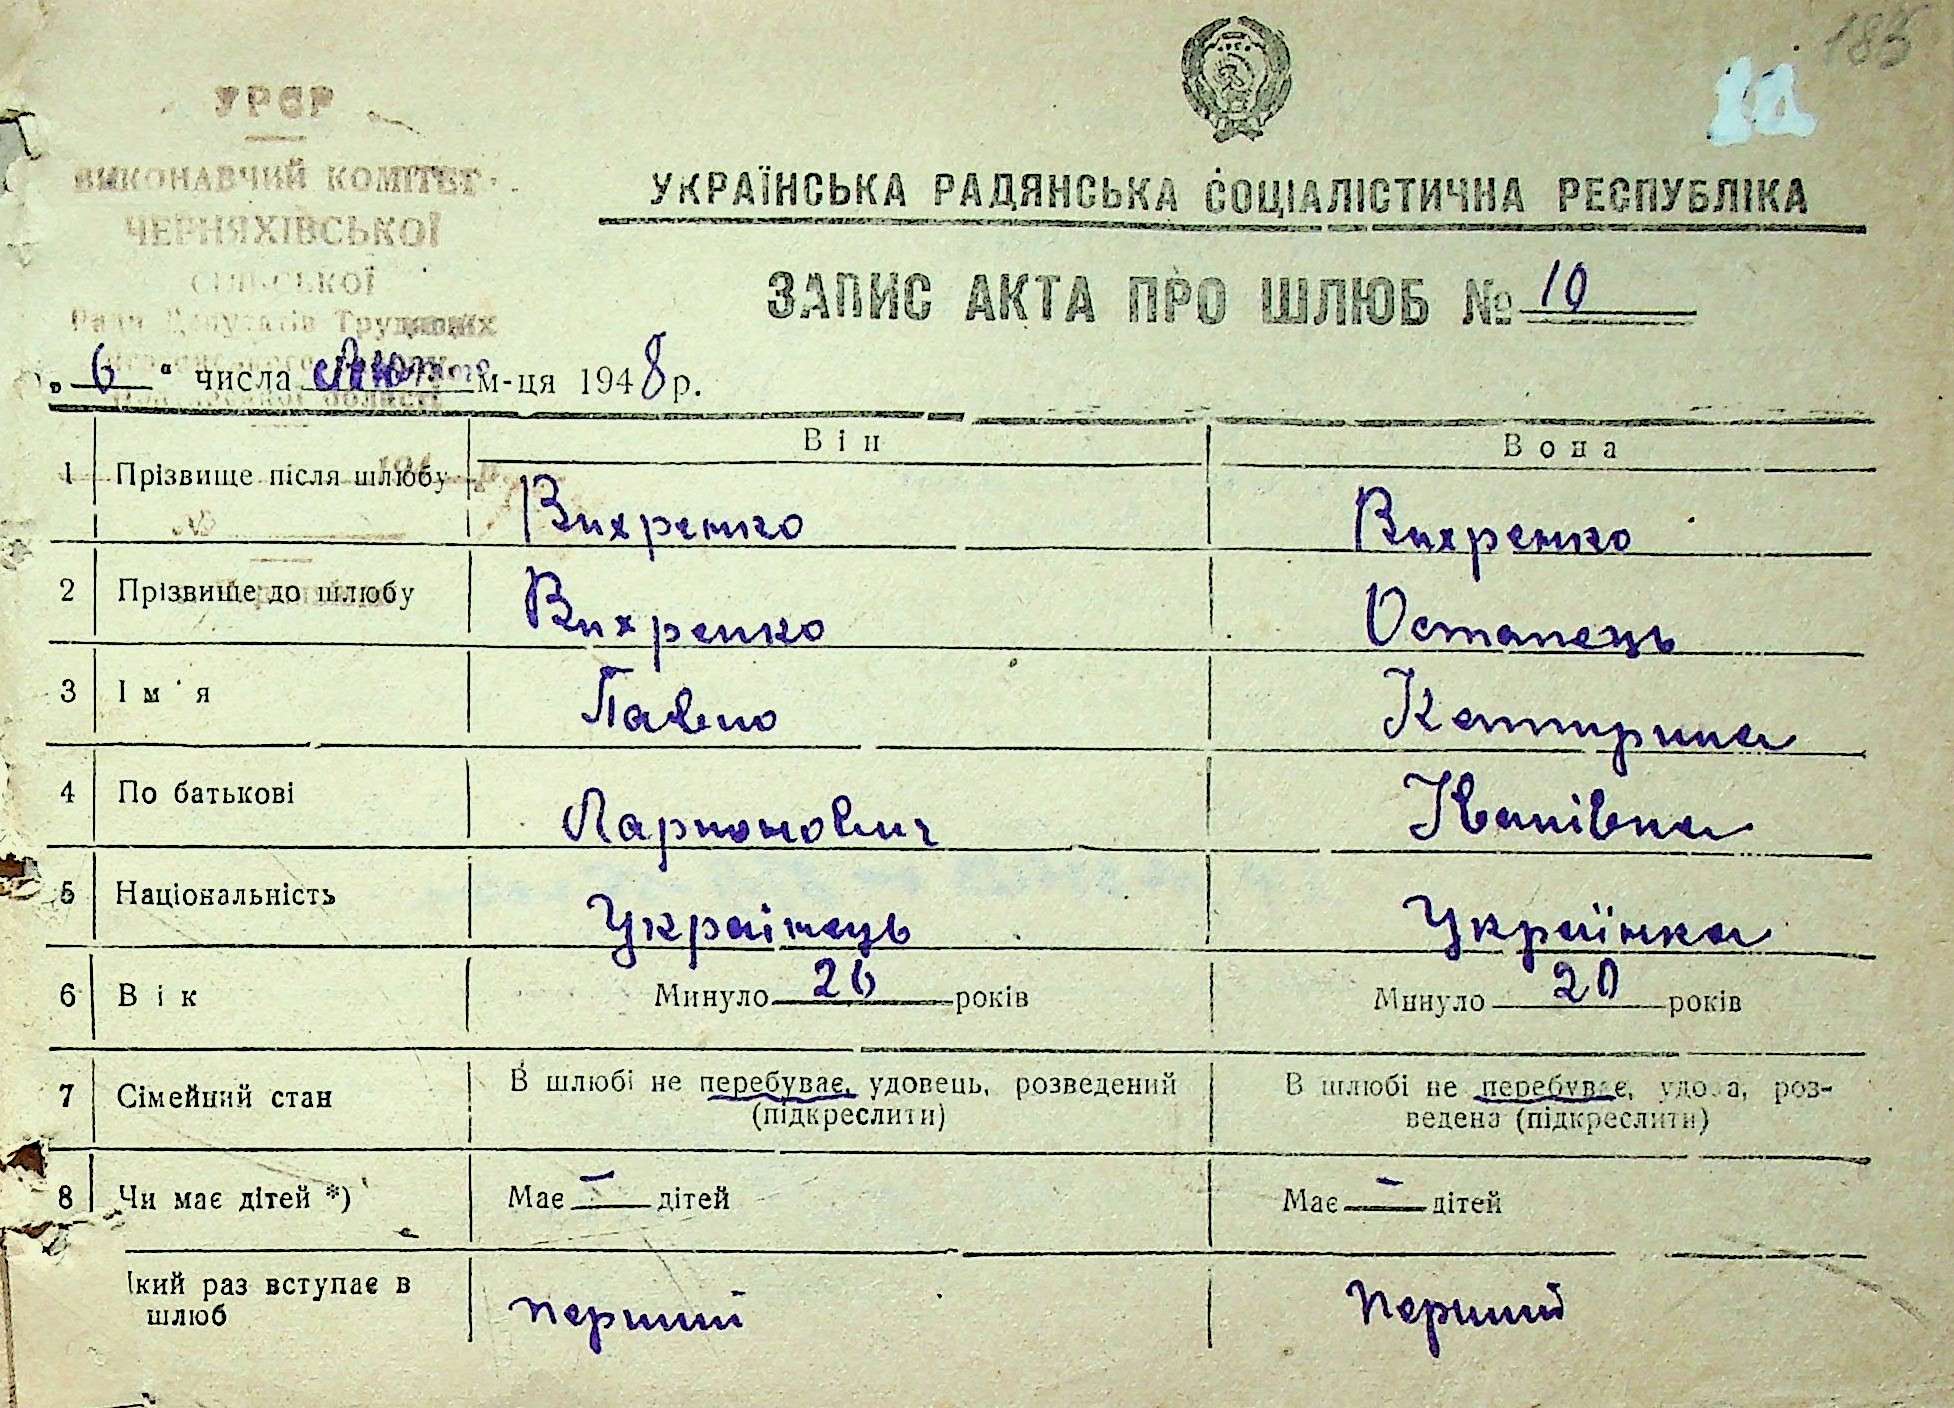 185
УРСР
ВИКОНАВЧИЙ КОМІТЕТ
ЧЕРНЯХІВСЬКОЇ
СІЛЬСЬКОЇ
Ради Депутатів Трудящих
області
УКРАЇНСЬКА РАДЯНСЬКА СОЦІАЛІСТИЧНА РЕСПУБЛІКА
ЗАПИС АКТА ПРО ШЛЮБ № 10
„ 6 “ числа м-ця 1948 р.
Він Вона
1 Прізвище після шлюбу Вихренко Вихренко
№
2 Прізвище до шлюбу Вихренко Остапець
3 Ім'я Павло Катирина
4 По батькові Ларионович Іванівна
5 Національність Украінець Українка
6 Вік Минуло 26 років Минуло 20 років
7 Сімейний стан В шлюбі не перебуває, удовець, розведений (підкреслити) В шлюбі не перебуває, удова, роз-
ведена (підкреслити)
8 Чи має дітей *) Має — дітей Має — дітей
кий раз вступає в
шлюб перший перший